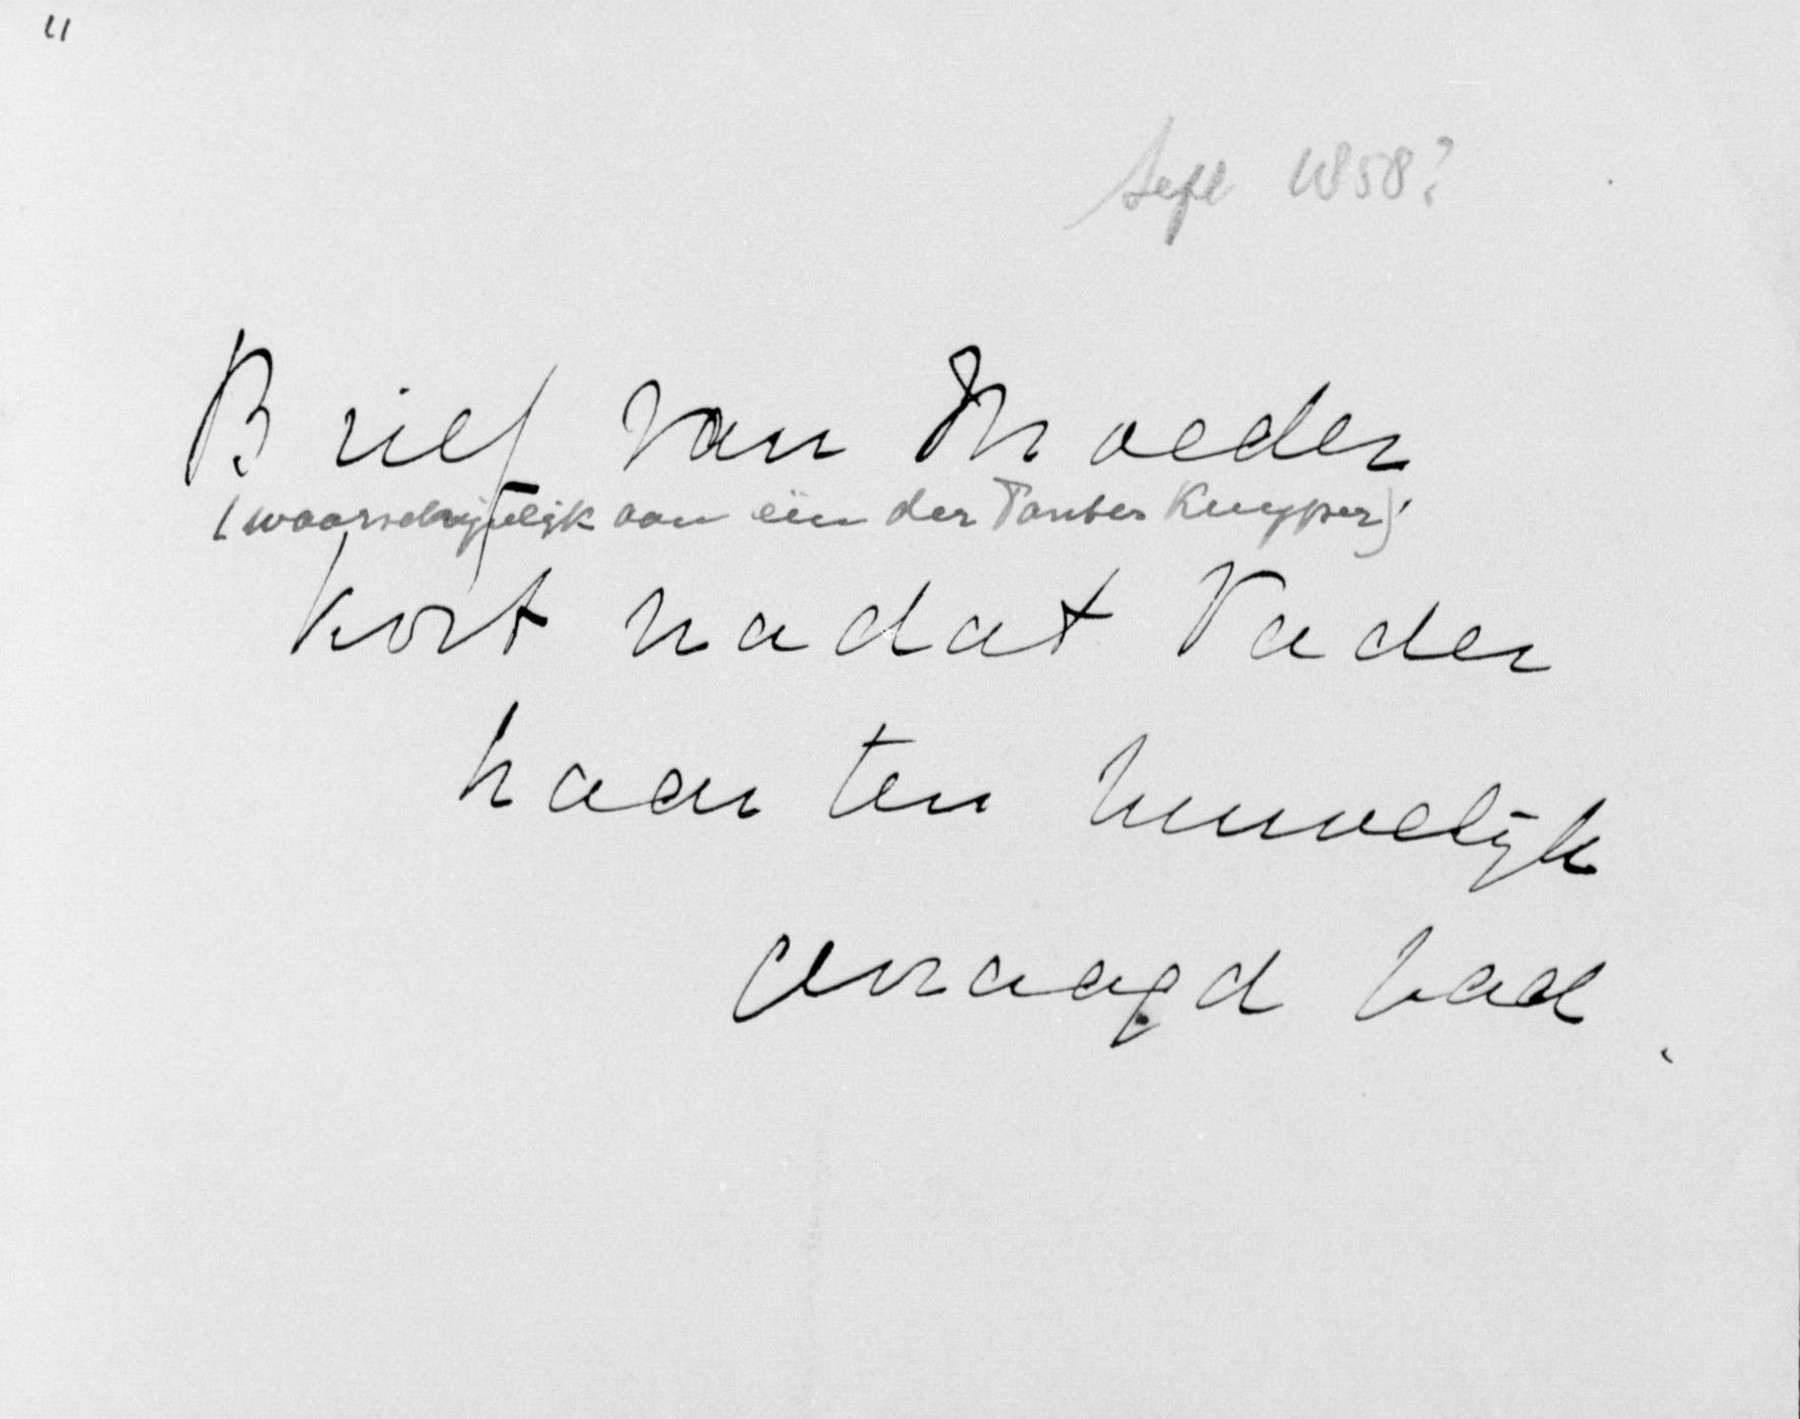 11
Sept 1858?
Brief van Moeder
(waarschijnlijk aan één der Tantes Kuyper)
kort nadat Vader
haar ten huwelijk
gevraagd had.